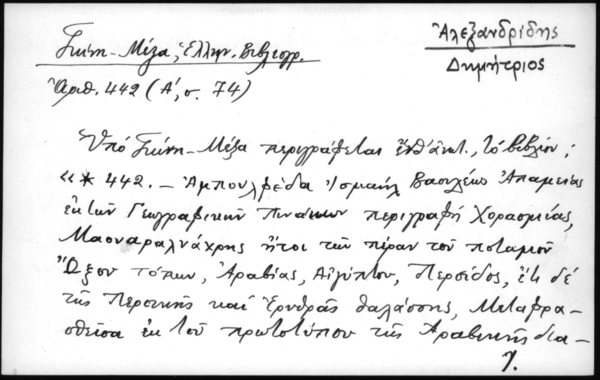 Ἀλεξανδρίδης
Δημήτριος
Γκίνη-Μέξα, Ἑλλην. Βιβλιογρ.
Ἀριθ. 442 (Α', σ. 74)
Ὑπό Γκίνη-Μέξα περιγράφεται ἐνθ' ἀνωτ., τό βιβλίον:
«* 442. – Ἀμπουλφέδα Ἰσμαήλ Βασιλέως Ἀπαμείας
ἐκ τῶν Γεωγραφικῶν Πινάκων περιγραφή Χορασμίας,
Μαουαραλνάχρης ἤτοι τῶν πέραν τοῦ ποταμοῦ
Ὤξου τόπων, Ἀραβίας, Αἰγύπτου, Περσίδος, ἔτι δέ
τῆς Περσικῆς καί Ἐρυθρᾶς θαλάσσης, Μεταφρα-
σθεῖσα ἐκ τοῦ πρωτοτύπου τῆς Ἀραβικῆς δια-
./.